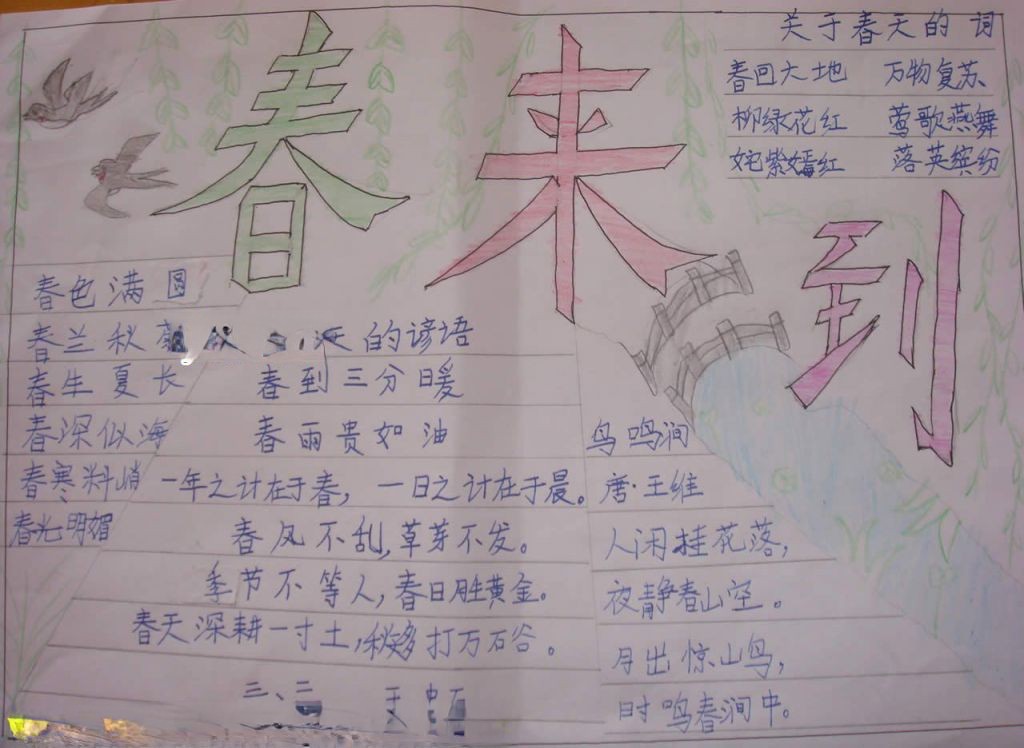 春来到
关于春天的词
春回大地 万物复苏
柳绿花红 莺歌燕舞
姹紫嫣红 落英缤纷
春色满圆
春兰秋
的谚语
春生夏长
春到三分暖
春深似海
春雨贵如油
春寒料峭
一年之计在于春，一日之计在于晨。
春光明媚
春风不乱，草芽不发。
季节不等人，春日胜黄金。
春天深耕一寸土，秋多打万石谷。
三、二
鸟鸣涧
唐·王维
人闲挂花落，
夜静春山空。
月出惊山鸟，
时鸣春涧中。